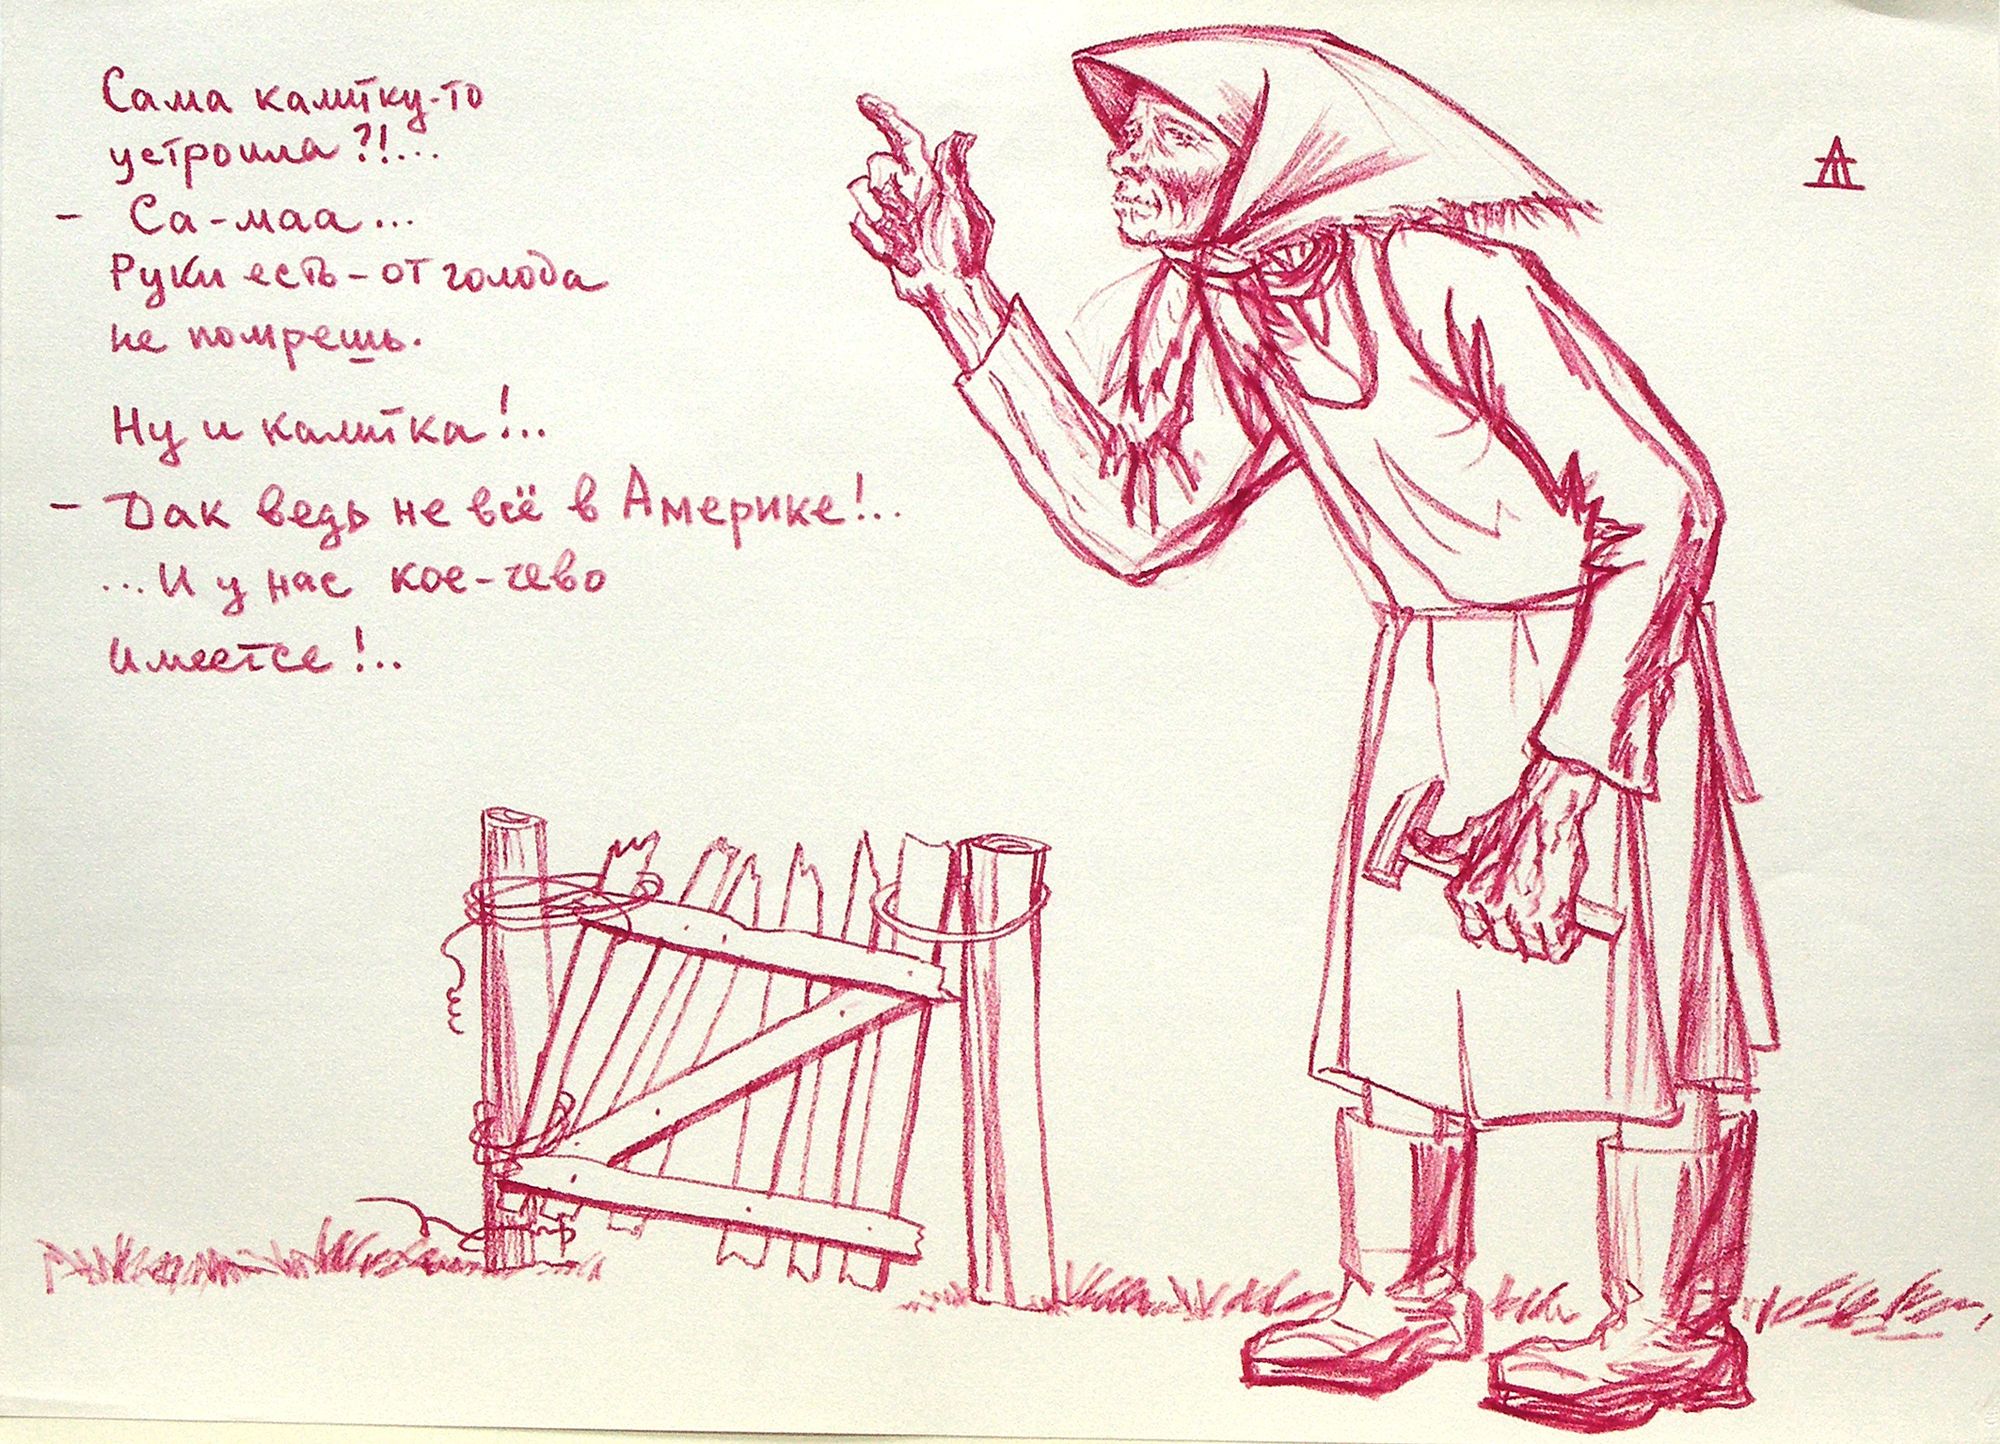 Сама калитку-то
устроила?!...
- Са-маа...
Руки есть-от голода
не помрешь.
Ну и калитка!..
- Дак ведь не всё в Америке!..
...И у нас кое-чево
имеетсе!..